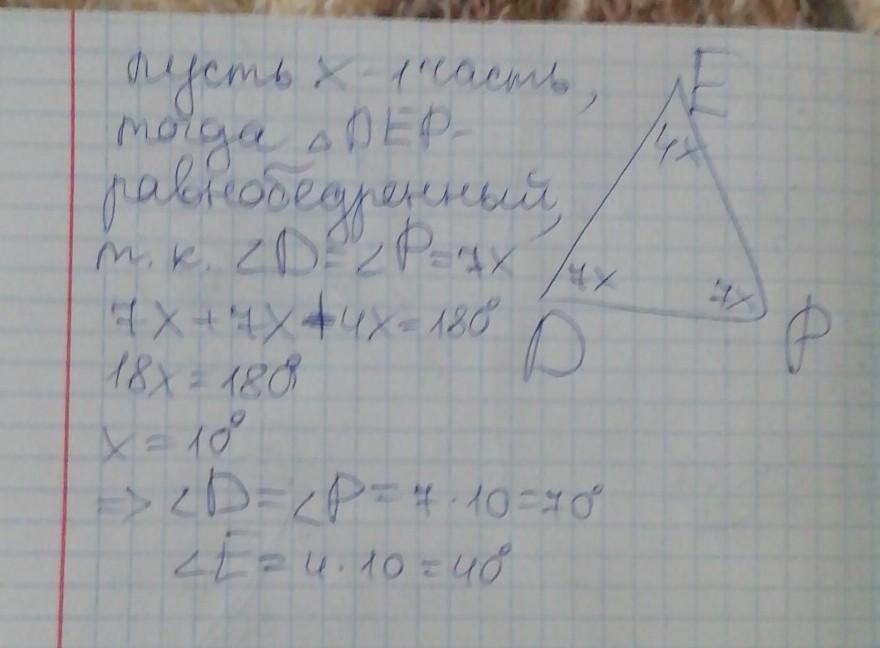 пусть x - 1 часть,
тогда △DEP -
равнобедренный,
т. к. ∠D = ∠P = 7x
7x + 7x + 4x = 180°
18x = 180°
x = 10°
=> ∠D = ∠P = 7 · 10 = 70°
∠E = 4 · 10 = 40°
E
4x
7x
7x
D
P